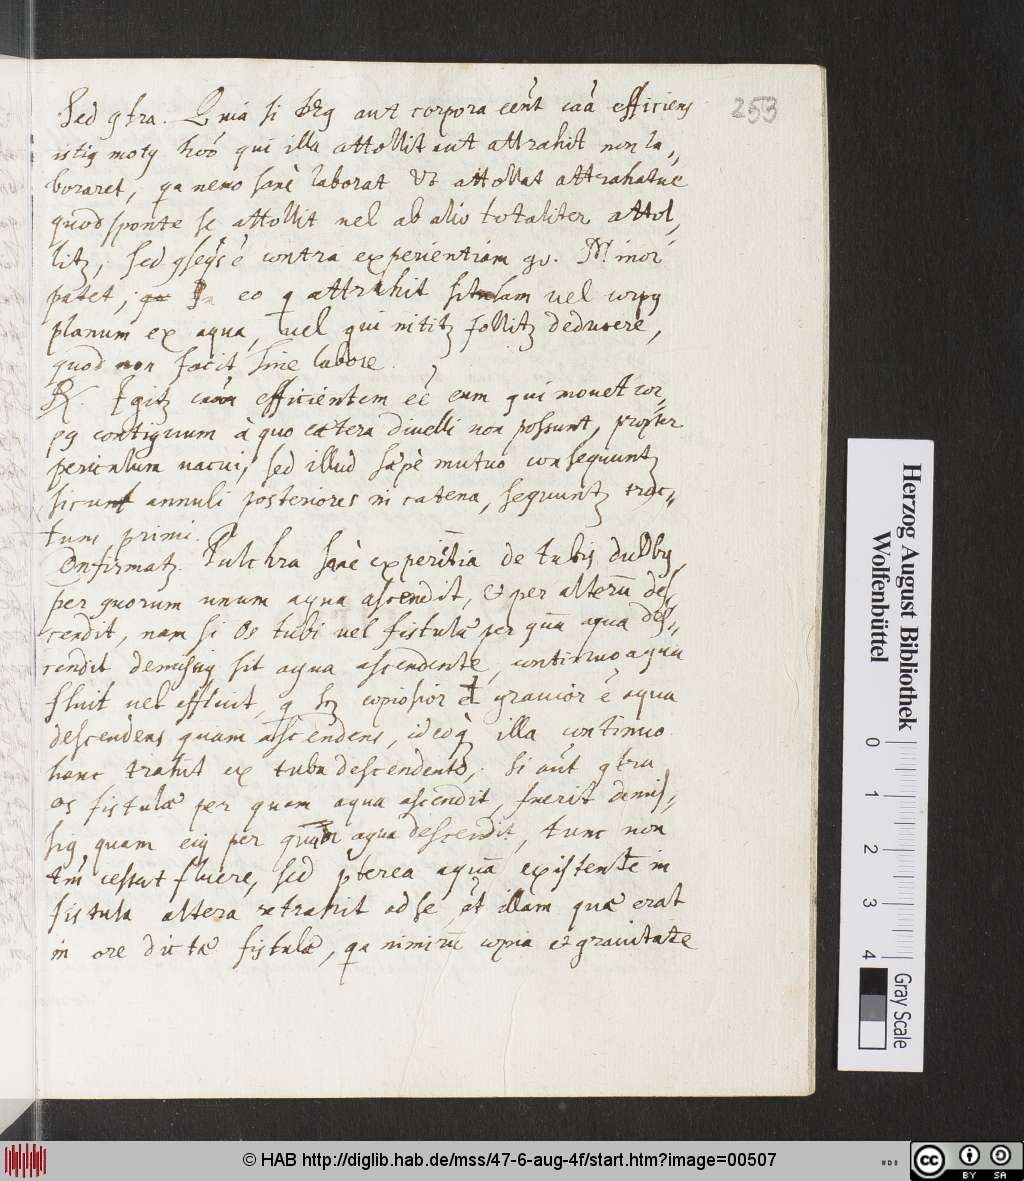 253
Sed 9tra. Quia si aut corpora eent caa efficiens
istiq motq hoc qui illa attollit aut attrahit non la„
boraret, qa nemo sanè laborat Ut attollat attrahatue
quod sponte se attollit vel ab alio totaliter attol„
litz, sed 9seqs ē contra experientiam go. Mi͞nor
patet, in eo q attrahit situlam vel corpq
planum ex aqua, vel qui nititz follitz deducere,
quod non facit sine labore.
R. Igitz caam efficientem eē eum qui mouet cor„
pq contiguum à quo cætera diuelli non possunt, propter
periculum vacui, sed illud sæpè mutuo consequuntz
sicunt annuli posteriores in catena, sequuntz trac„
tum primi.
Confirmatz. Pulchra sanè experiētia de tubis duobq,
per quorum unum aqua ascendit, & per alterū des„
cendit, nam si os tubi vel fistulæ per quā aqua des„
cendit demissiq sit aqua ascendente, continuo aqua
fluit vel effluit, q scz copiosior et grauior ē aqua
descendens quam ascendens, ideoq illa continuo
hanc trahit ex tubo descendente; Si aut 9tra
os fistulæ per quam aqua ascendit, fuerit demis„
siq quam eiq per quam aqua descendit, tunc non
tm cessat fluere, sed pterea aquā existentē in
fistula altera retrahit ad se et illam quæ erat
in ore dictæ fistulæ, qa nimirū copia & grauitate
Herzog August Bibliothek
Wolfenbüttel
0 1 2 3 4
Gray Scale
© HAB http://diglib.hab.de/mss/47-6-aug-4f/start.htm?image=00507
cc BY SA